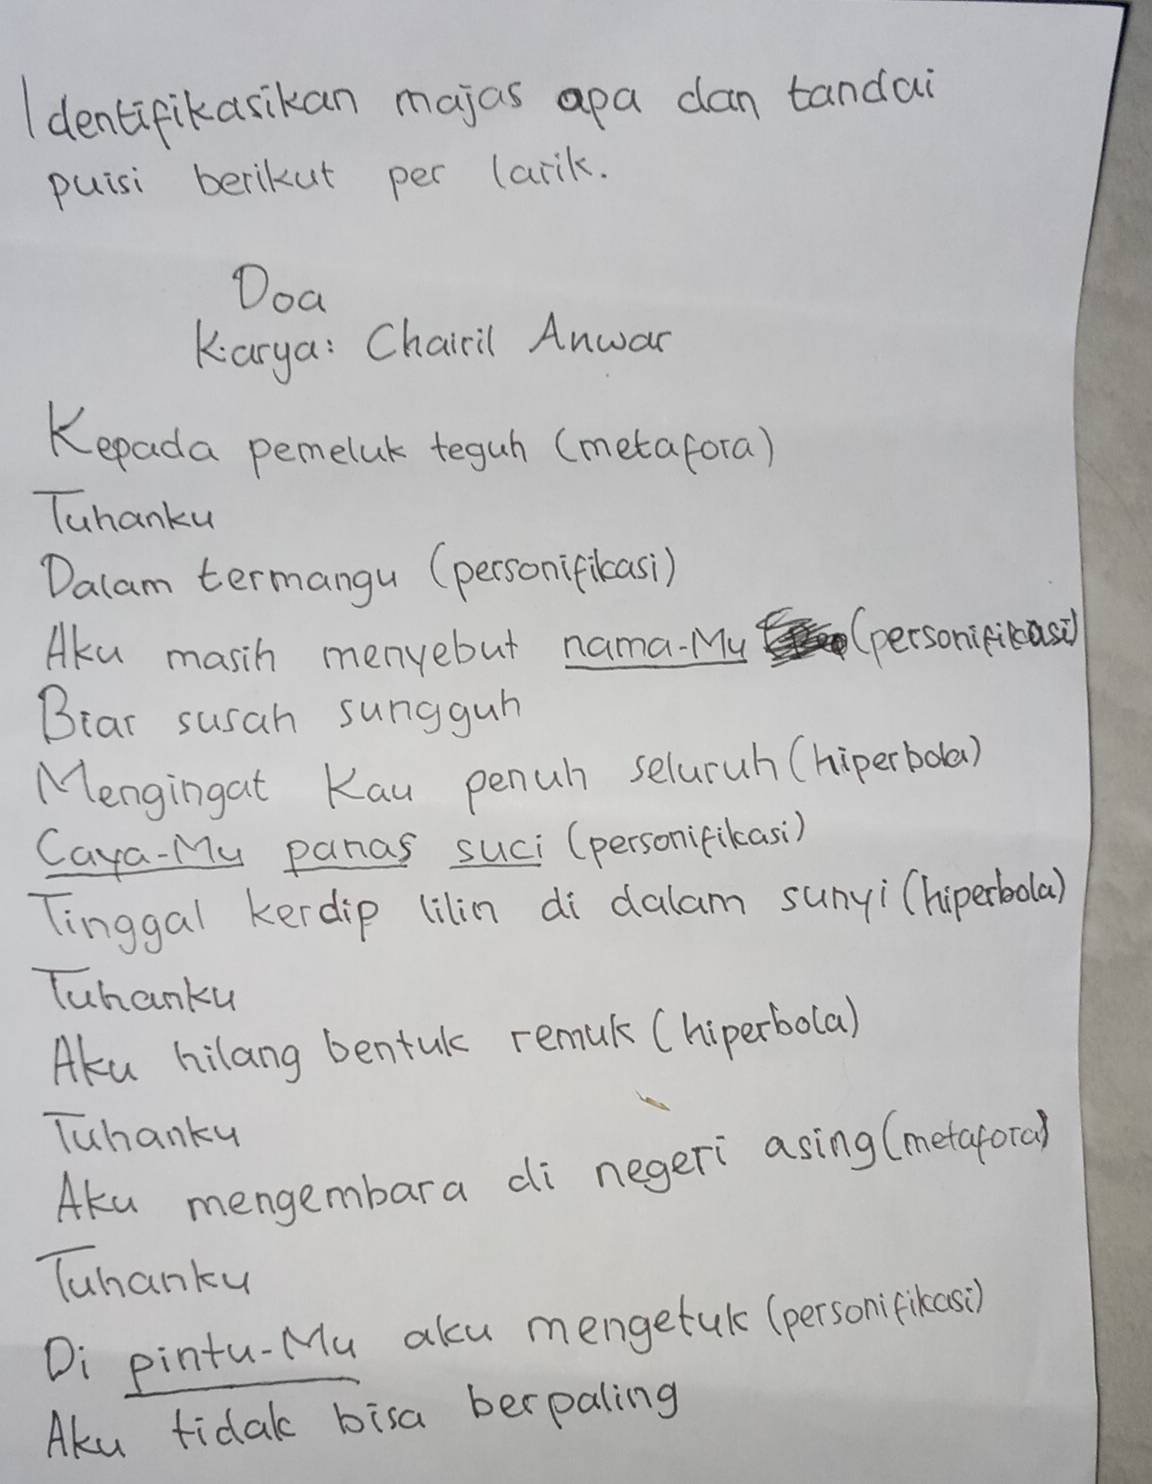 Identifikasikan majas apa dan tandai
puisi berikut per larik.
Doa
Karya: Chairil Anwar
Kepada pemeluk teguh (metafora)
Tuhanku
Dalam termangu (personifikasi)
Aku masih menyebut nama-Mu (personifikasi)
Biar susah sungguh
Mengingat Kau penuh seluruh (hiperbola)
Caya-Mu panas suci (personifikasi)
Tinggal kerdip lilin di dalam sunyi (hiperbola)
Tuhanku
Aku hilang bentuk remuk (hiperbola)
Tuhanku
Aku mengembara di negeri asing (metafora)
Tuhanku
Di pintu-Mu aku mengetuk (personifikasi)
Aku tidak bisa berpaling